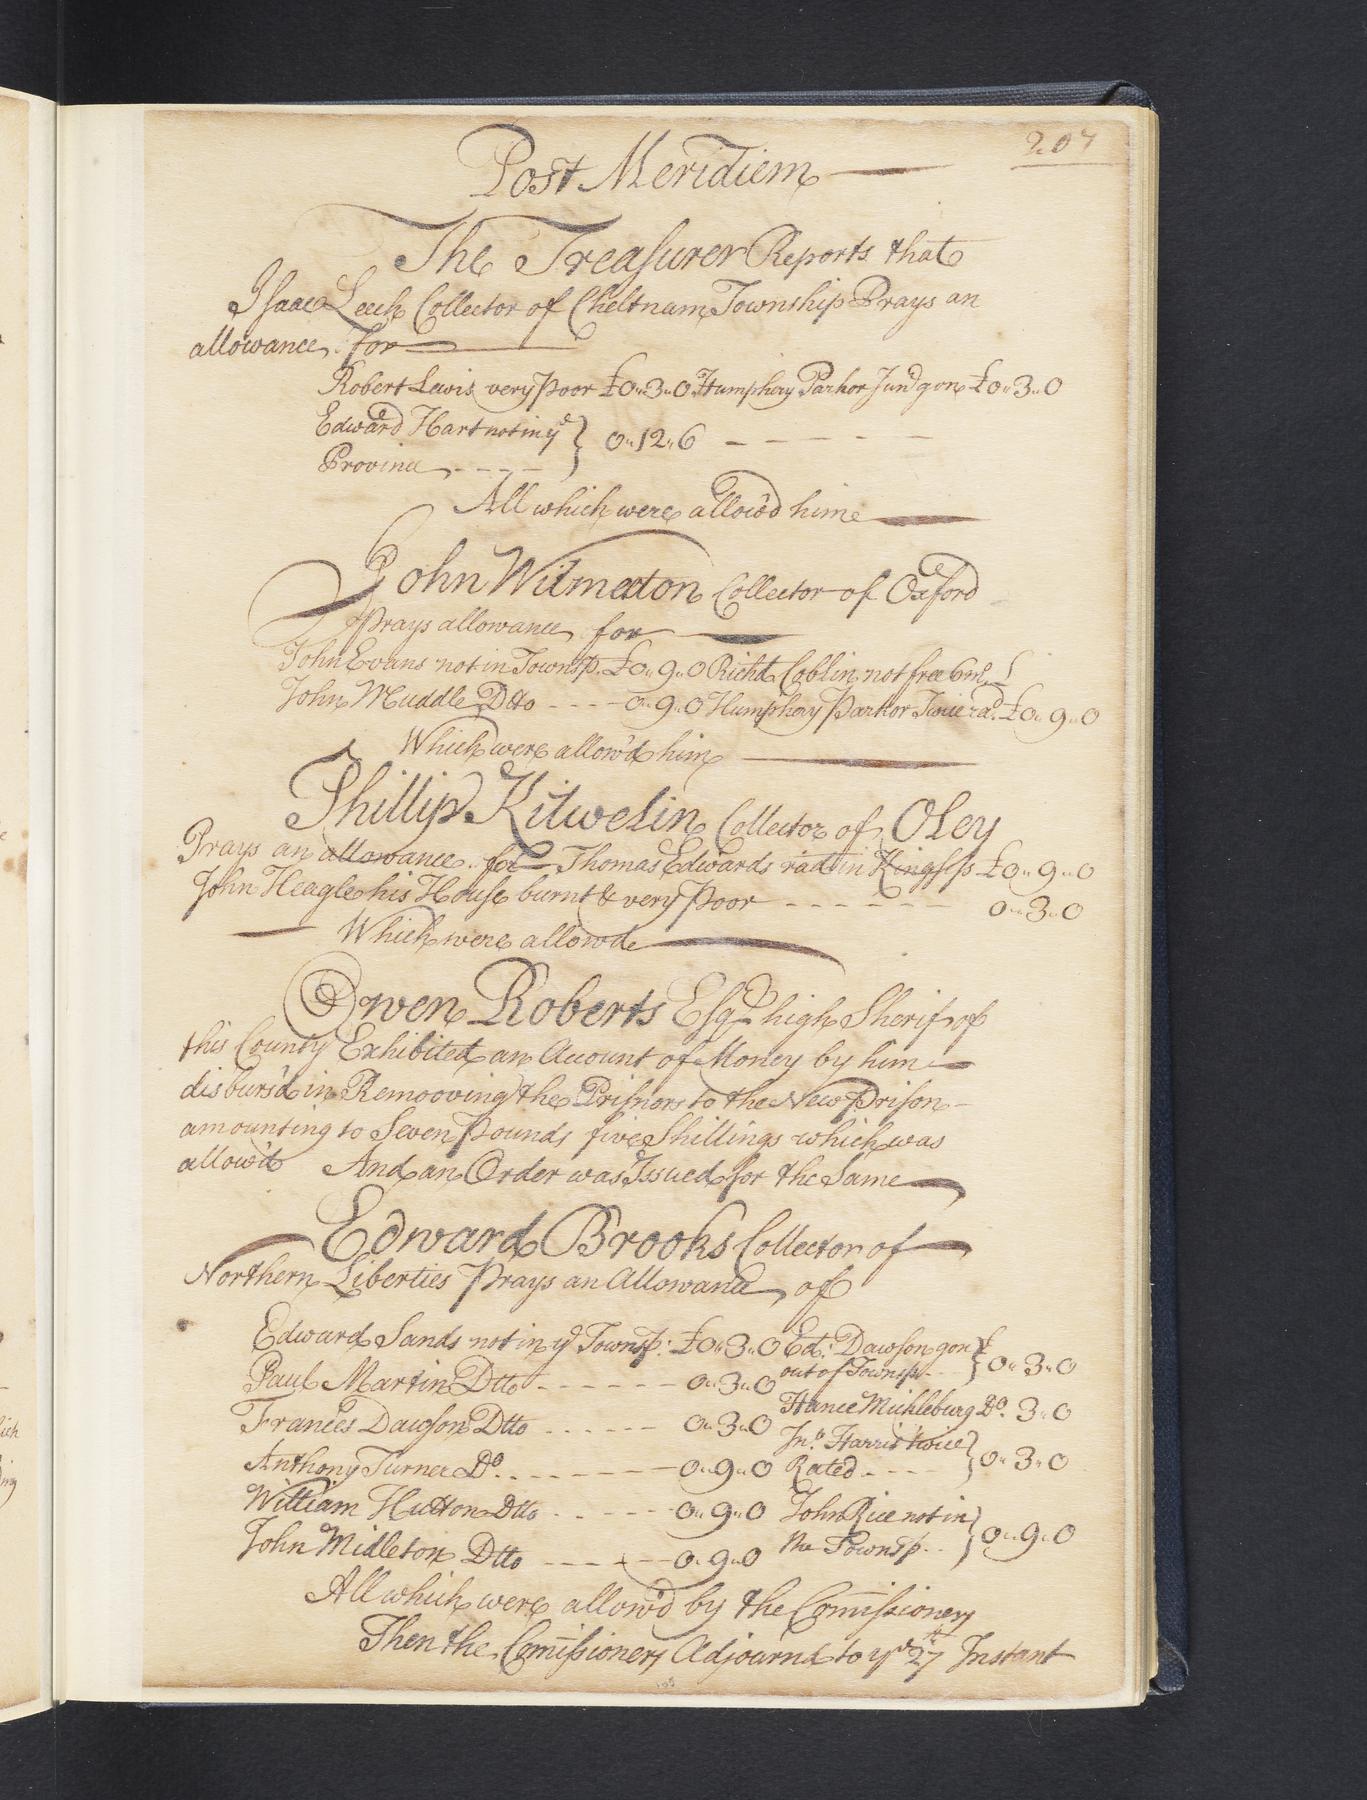 207
Post Meridiem
The Treasurer Reports that
Isaac Leech Collector of Cheltnam Township Prays an
allowance for
Robert Lewis very poor £0..3..0 Humphry Parkor Jund gon £0..3..0
Edward Hart not in ye } 0..12..6
Province
All which were allow'd hime
John Wilmerton Collector of Oxford
prays allowance for
John Evans not in Townsp. £0..9..0 Richd Coblin not free 6m.
John Muddle Dtto 0..9..0 Humphry Parkor Twice rad. £0..9..0
Which were allow'd him
Phillip Kitwelin Collector of Oley
Prays an allowance for Thomas Edwards rad in Kingsess £0..9..0
John Heagle his House burnt & very poor 0..3..0
Which were allowde
Owen Roberts Esqr high Sherif of
this County Exhibited an Account of Money by him
disburs'd in Remooving the Prisnors to the New Prison
amounting to Seven Pounds five Shillings which was
allow'd And an Order was Issued for the Same
Edward Brooks Collector of
Northern Liberties Prays an Allowance of
Edward Sands not in ye Townsp: £0..3..0 Ed: Dawson gon } £
out of Townsp. } 0..3..0
Paul Martin Dtto 0..3..0
Hance Muhleburg Do. 3..0
Frances Dawson Dtto 0..3..0
Jno Harris twice }
Anthony Turner Do. 0..9..0 Rated } 0..3..0
William Hutton Dtto 0..9..0 John Rice not in }
John Midleton Dtto 0..9..0 the Townsp. } 0..9..0
All which were allow'd by the Comissioners
Then the Comissioners Adjournd to ye 27th Instant